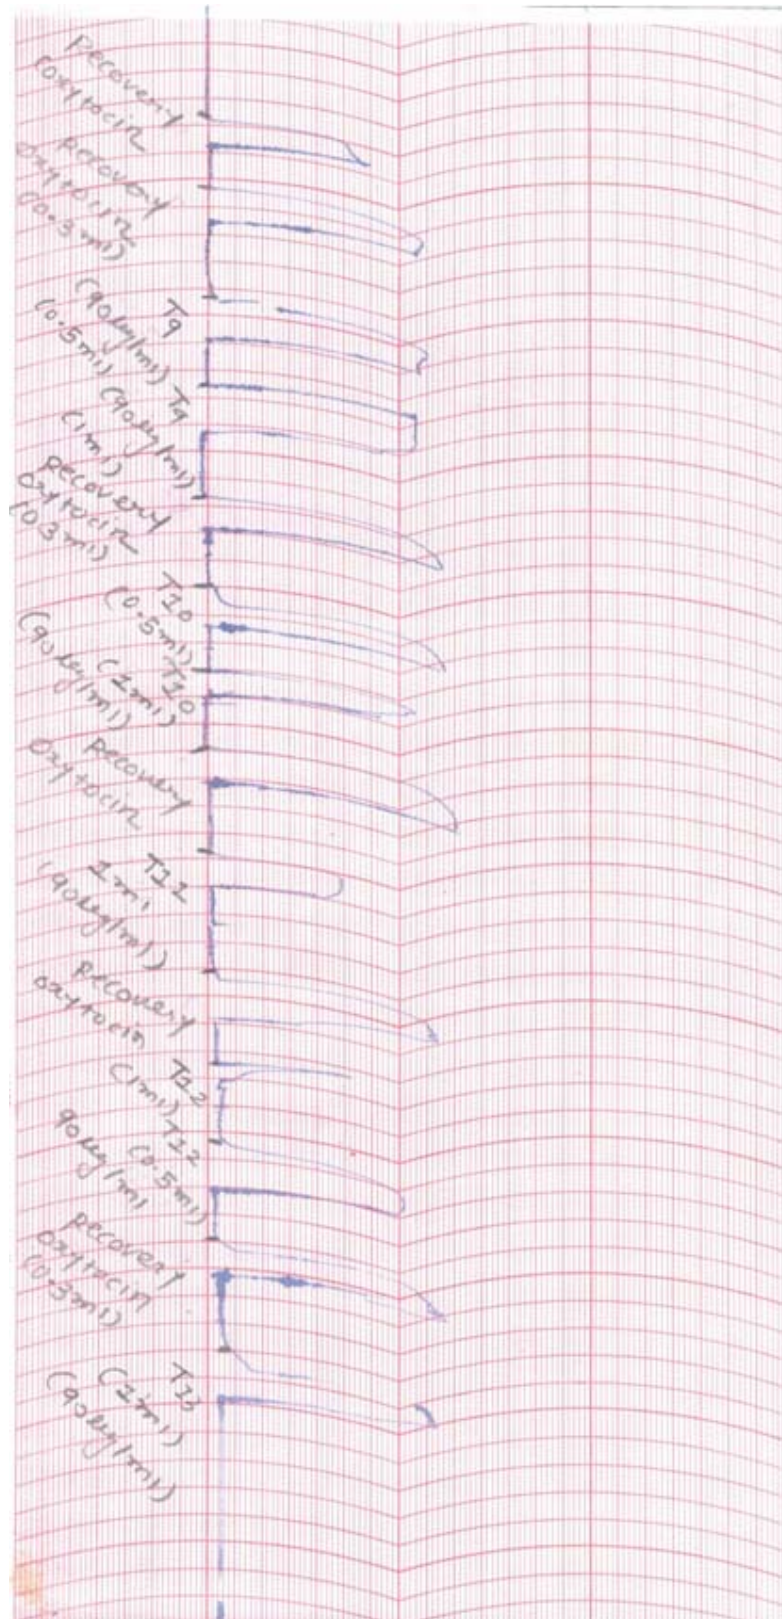 recovery
oxytocin
recovery
oxytocin
(0.3ml)
T9
(90ug/ml)
(0.5ml)
T9
(90ug/ml)
(1ml)
recovery
oxytocin
(03ml)
T10
(0.5ml)
T10
(1ml)
(90ug/ml)
recovery
oxytocin
T11
1ml
(90ug/ml)
recovery
oxytocin
T12
(1ml)
T12
(0.5ml)
90ug/ml
recovery
oxytocin
(0.3ml)
T13
(1ml)
(90ug/ml)